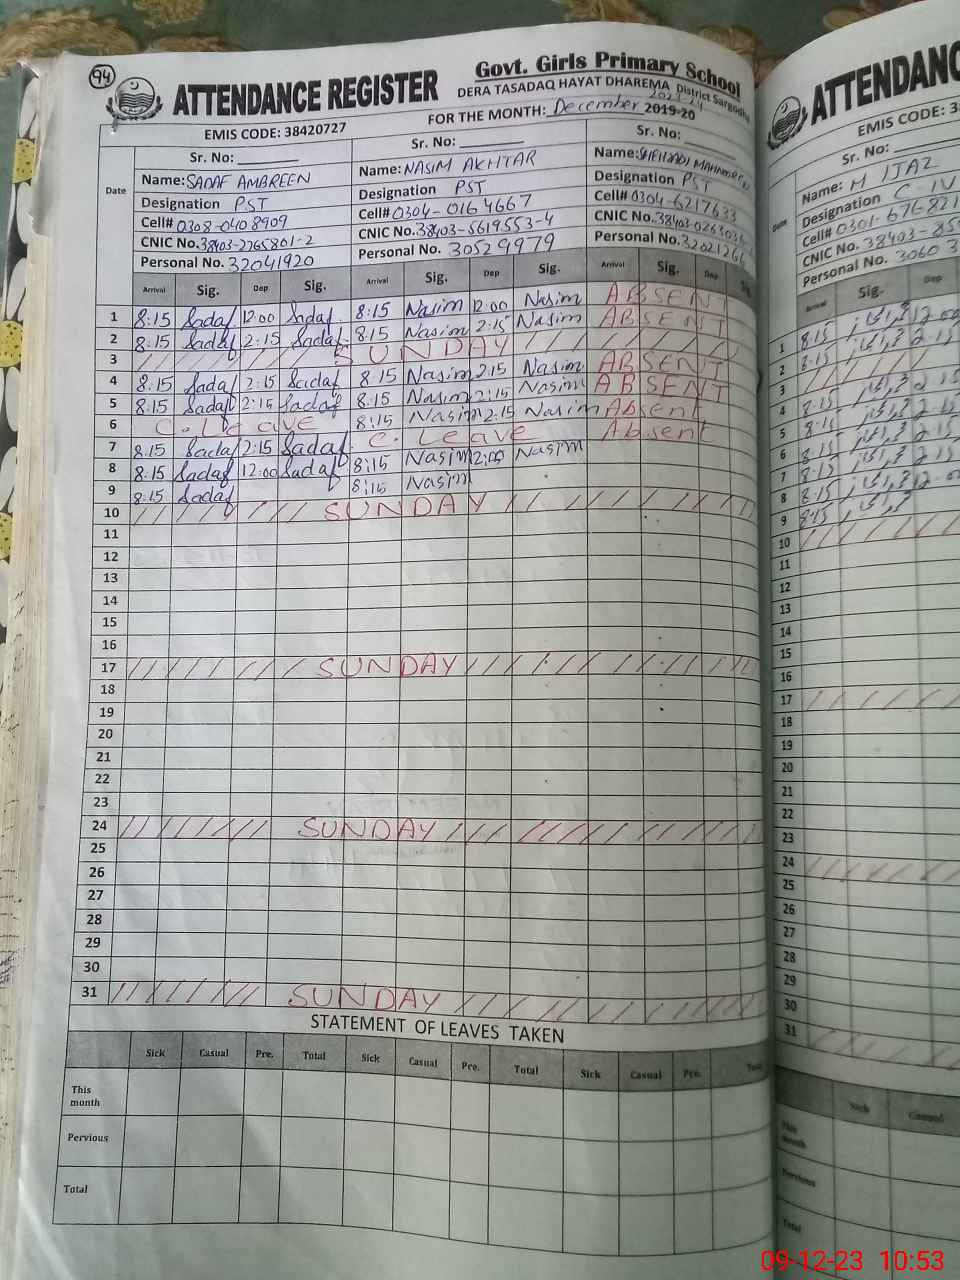 94
ATTENDANCE REGISTER
Govt. Girls Primary School
DERA TASADAQ HAYAT DHAREMA District Sargodha
EMIS CODE: 38420727
FOR THE MONTH: December 2019-20
Date
Sr. No:
Name: SADAF AMBREEN
Designation PST
Cell# 0308-0408909
CNIC No. 38403-2765801-2
Personal No. 32041920
Sr. No:
Name: NASIM AKHTAR
Designation PST
Cell# 0304-0164667
CNIC No. 38403-5619553-4
Personal No. 30529979
Sr. No:
Name:
Designation PST
Cell# 0304-6217633
CNIC No.
Personal No.
Arrival Sig. Dep Sig. Arrival Sig. Dep Sig. Arrival Sig. Dep
1 8:15 Sadaf 12:00 Sadaf 8:15 Nasim 12:00 Nasim ABSENT
2 8:15 Sadaf 2:15 Sadaf 8:15 Nasim 2:15 Nasim ABSENT
3 SUNDAY
4 8:15 Sadaf 2:15 Sadaf 8:15 Nasim 2:15 Nasim ABSENT
5 8:15 Sadaf 2:15 Sadaf 8:15 Nasim 2:15 Nasim ABSENT
6 C. Leave 8:15 Nasim 2:15 Nasim Absent
7 8:15 Sadaf 2:15 Sadaf C. Leave Absent
8 8:15 Sadaf 12:00 Sadaf 8:15 Nasim Nasim
9 8:15 Sadaf 8:15 Nasim
10 SUNDAY
11
12
13
14
15
16
17 SUNDAY
18
19
20
21
22
23
24 SUNDAY
25
26
27
28
29
30
31 SUNDAY
STATEMENT OF LEAVES TAKEN
Sick Casual Pre. Total Sick Casual Pre. Total Sick Casual Pre.
This month
Pervious
Total
ATTENDANC
EMIS CODE: 3
Sr. No:
Name: M IJAZ
Designation C-IV
Cell# 0301-676-821
CNIC No. 38403-85
Personal No. 3060 3
Date
Arrival Sig. Dep
1 8:15
2 8:15 2:15
3
4 8:15 2:15
5 8:15 2:15
6 8:15 2:15
7 8:15 2:15
8 8:15
9 8:15
10
11
12
13
14
15
16
17
18
19
20
21
22
23
24
25
26
27
28
29
30
31
Sick Casual
This month
Pervious
Total
09-12-23 10:53